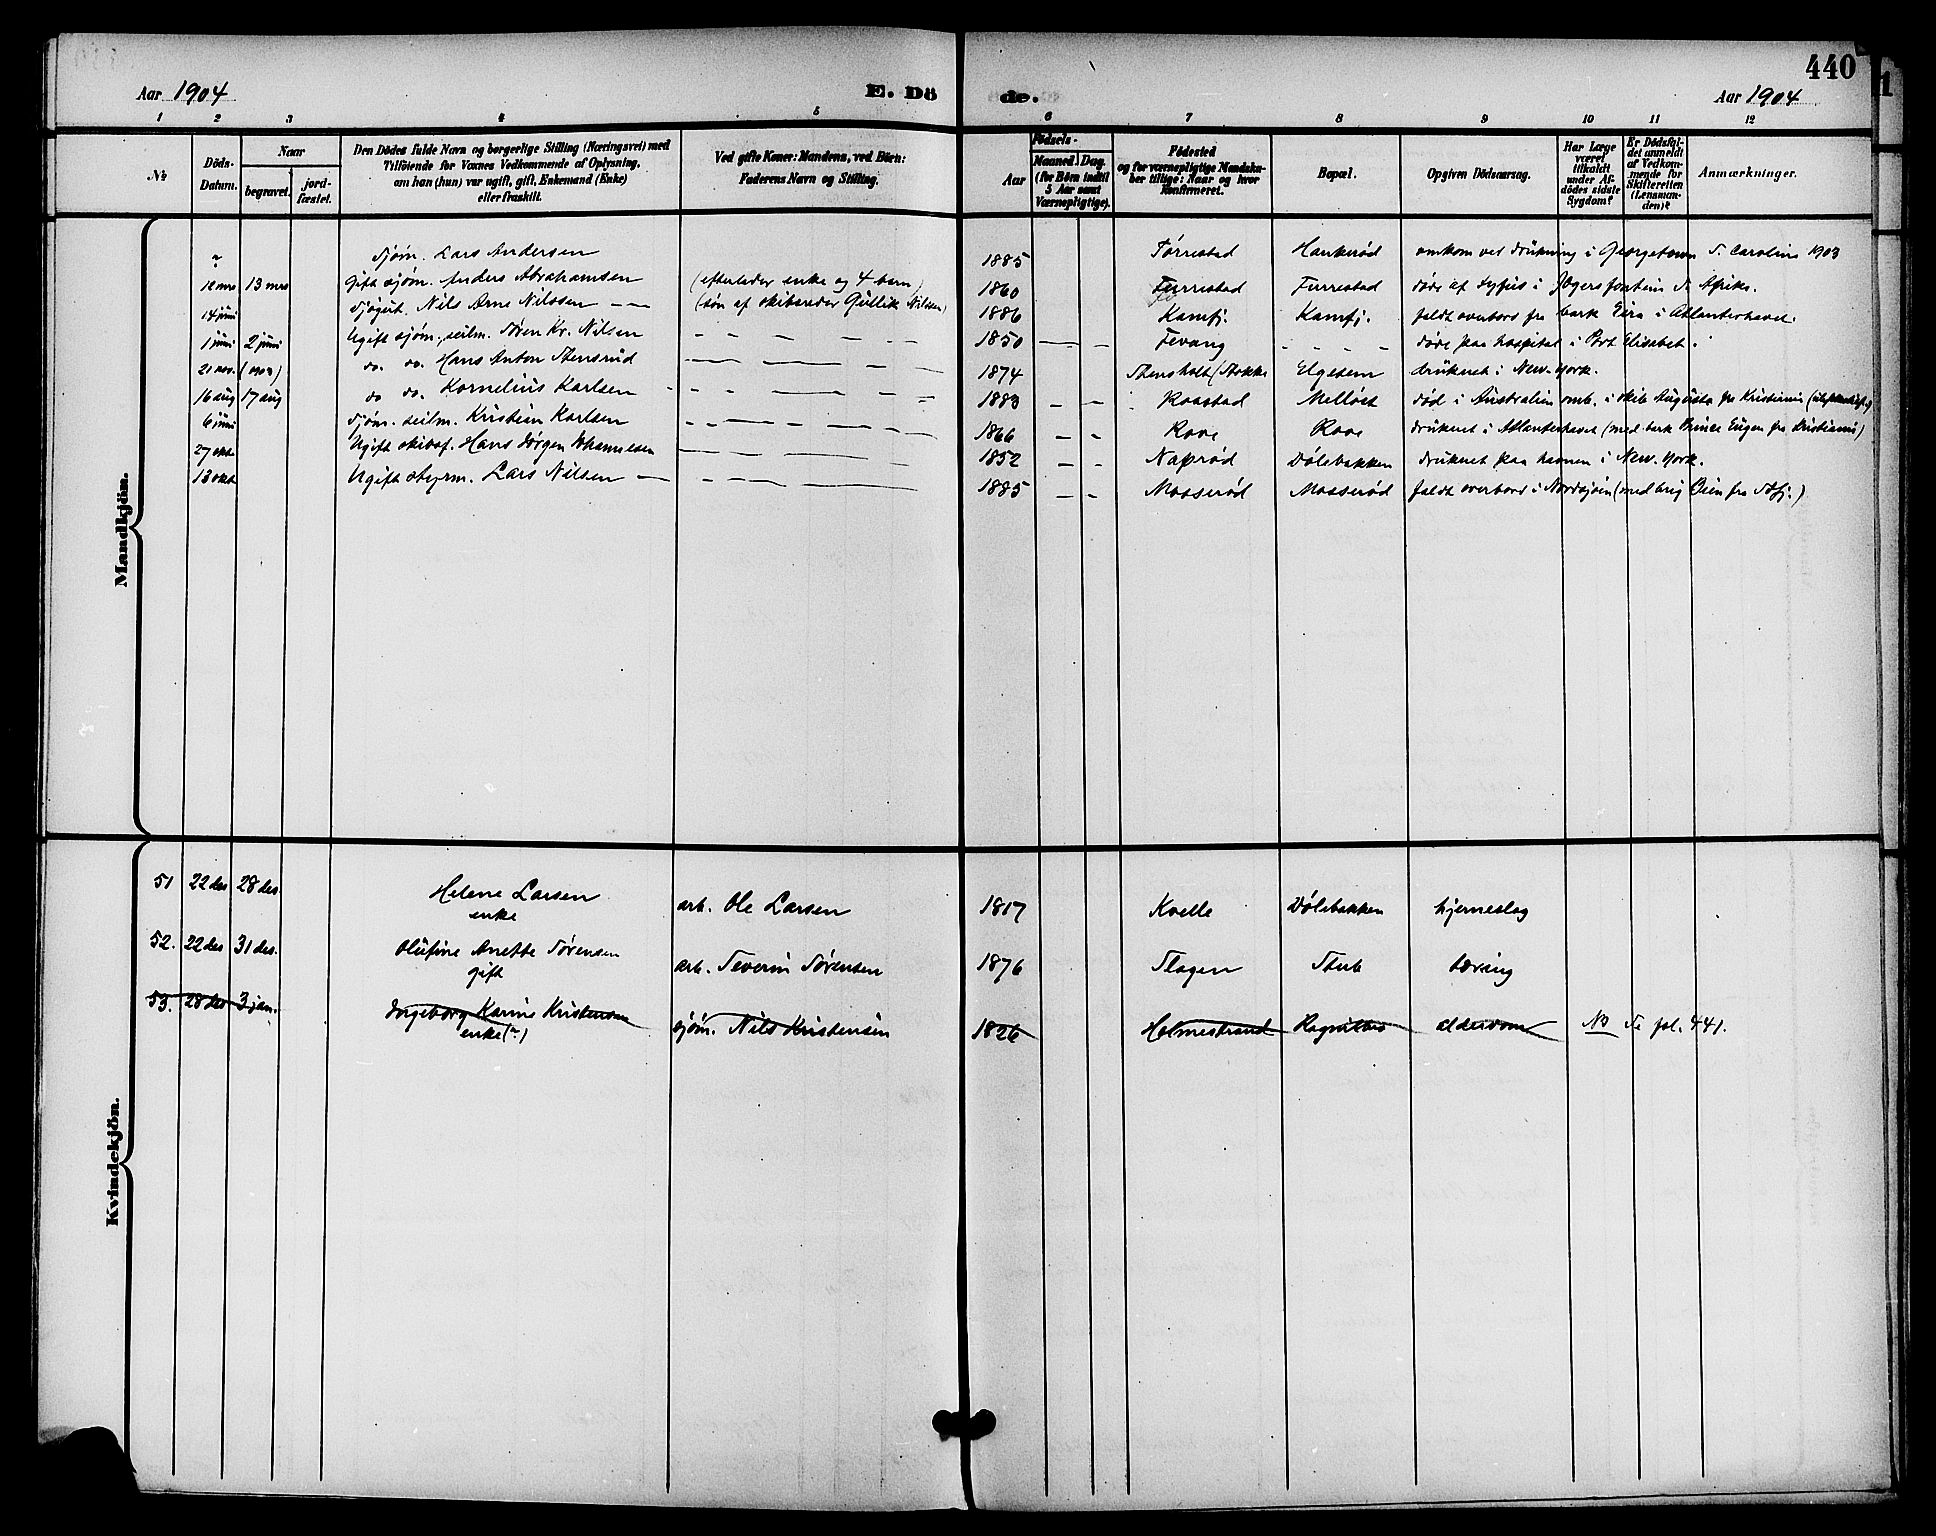 440
Aar 1904 E. Dö de. Aar 1904
1 2 3 4 5 6 7 8 9 10 11 12
№
Döds-
Datum.
Naar
begravet.
jord-
fæstet.
Den Dödes fulde Navn og borgerlige Stilling (Næringsvei) med
Tilföiende for Voxnes Vedkommende af Oplysning,
om han (hun) var ugift, gift, Enkemand (Enke)
eller fraskilt.
Ved gifte Koner: Mandens, ved Börn:
Faderens Navn og Stilling.
Födsels-
Aar
Maaned. Dag.
(for Börn indtil
5 Aar samt
Værnepligtige).
Födested
og for værnepligtige Mandska-
ber tillige: Naar og hvor
Konfirmeret.
Bopæl.
Opgiven Dödsaarsag.
Har Læge
været
tilkaldt
under Af-
dödes sidste
Sygdom?
Er Dödsfal-
det anmeldt
af Vedkom-
mende for
Skifteretten
(Lensman-
den)?
Anmærkninger.
Mandkjön.
? Sjøm. Lars Andersen 1885 Tørrestad Haukerød omkom ved drukning i Georgetown S. Carolina 1903
12 mrs 13 mrs Gift sjøm. Anders Abrahamsen (efterlader enke og 4 barn) 1860 Furrestad Furrestad døde af tyfus i S. Afrika.
14 juni Sjøgut. Nils Arne Nilssen — — (søn af skibsreder Gullik Nilssen) 1886 Kamfj. Kamfj. faldt overbord fra bark Eira i Atlanterhavet.
1 juni 2 juni Ugift sjøm., seilm. Søren Kr. Nilsen 1850 Fevang døde paa hospital i Port Elisabet.
21 nov. (1903) do. do. Hans Anton Stensrud 1874 Stensholt (Stokke Elgesem druknet i New-York.
16 aug 17 aug do do. Kornelius Karlsen 1883 Raastad Melløst død i Australien omb. i skib Augusta fra Kristiania
6 juni Sjøm. seilm. Kristian Karlsen 1866 Rove Rove druknet i Atlanterhavet (med bark Prince Eugen fra Kristiania)
27 okt Ugift skibsf. Hans Jørgen Johannessen 1852 Naprød Dølebakken druknet paa havnen i New-York.
18 okt Ugift styrm. Lars Nilsen 1885 Moaserød Moaserød faldt overbord i Nordsjøen (med brig Øien fra Sdfj.)
Kvindekjön.
51 22 des 28 des Helene Larsen arb. Ole Larsen 1817 Kvelle Dølebakken hjerneslag
enke
52. 22 des 31 des. Olufine Anette Sørensen arb. Severin Sørensen 1876 Slagen Stub tæring
gift
53. 28 des 3 jan. Ingeborg Karine Kristensen sjøm. Nils Kristensen 1826 Holmestrand alderdom NB Se fol. 441.
enke (?)